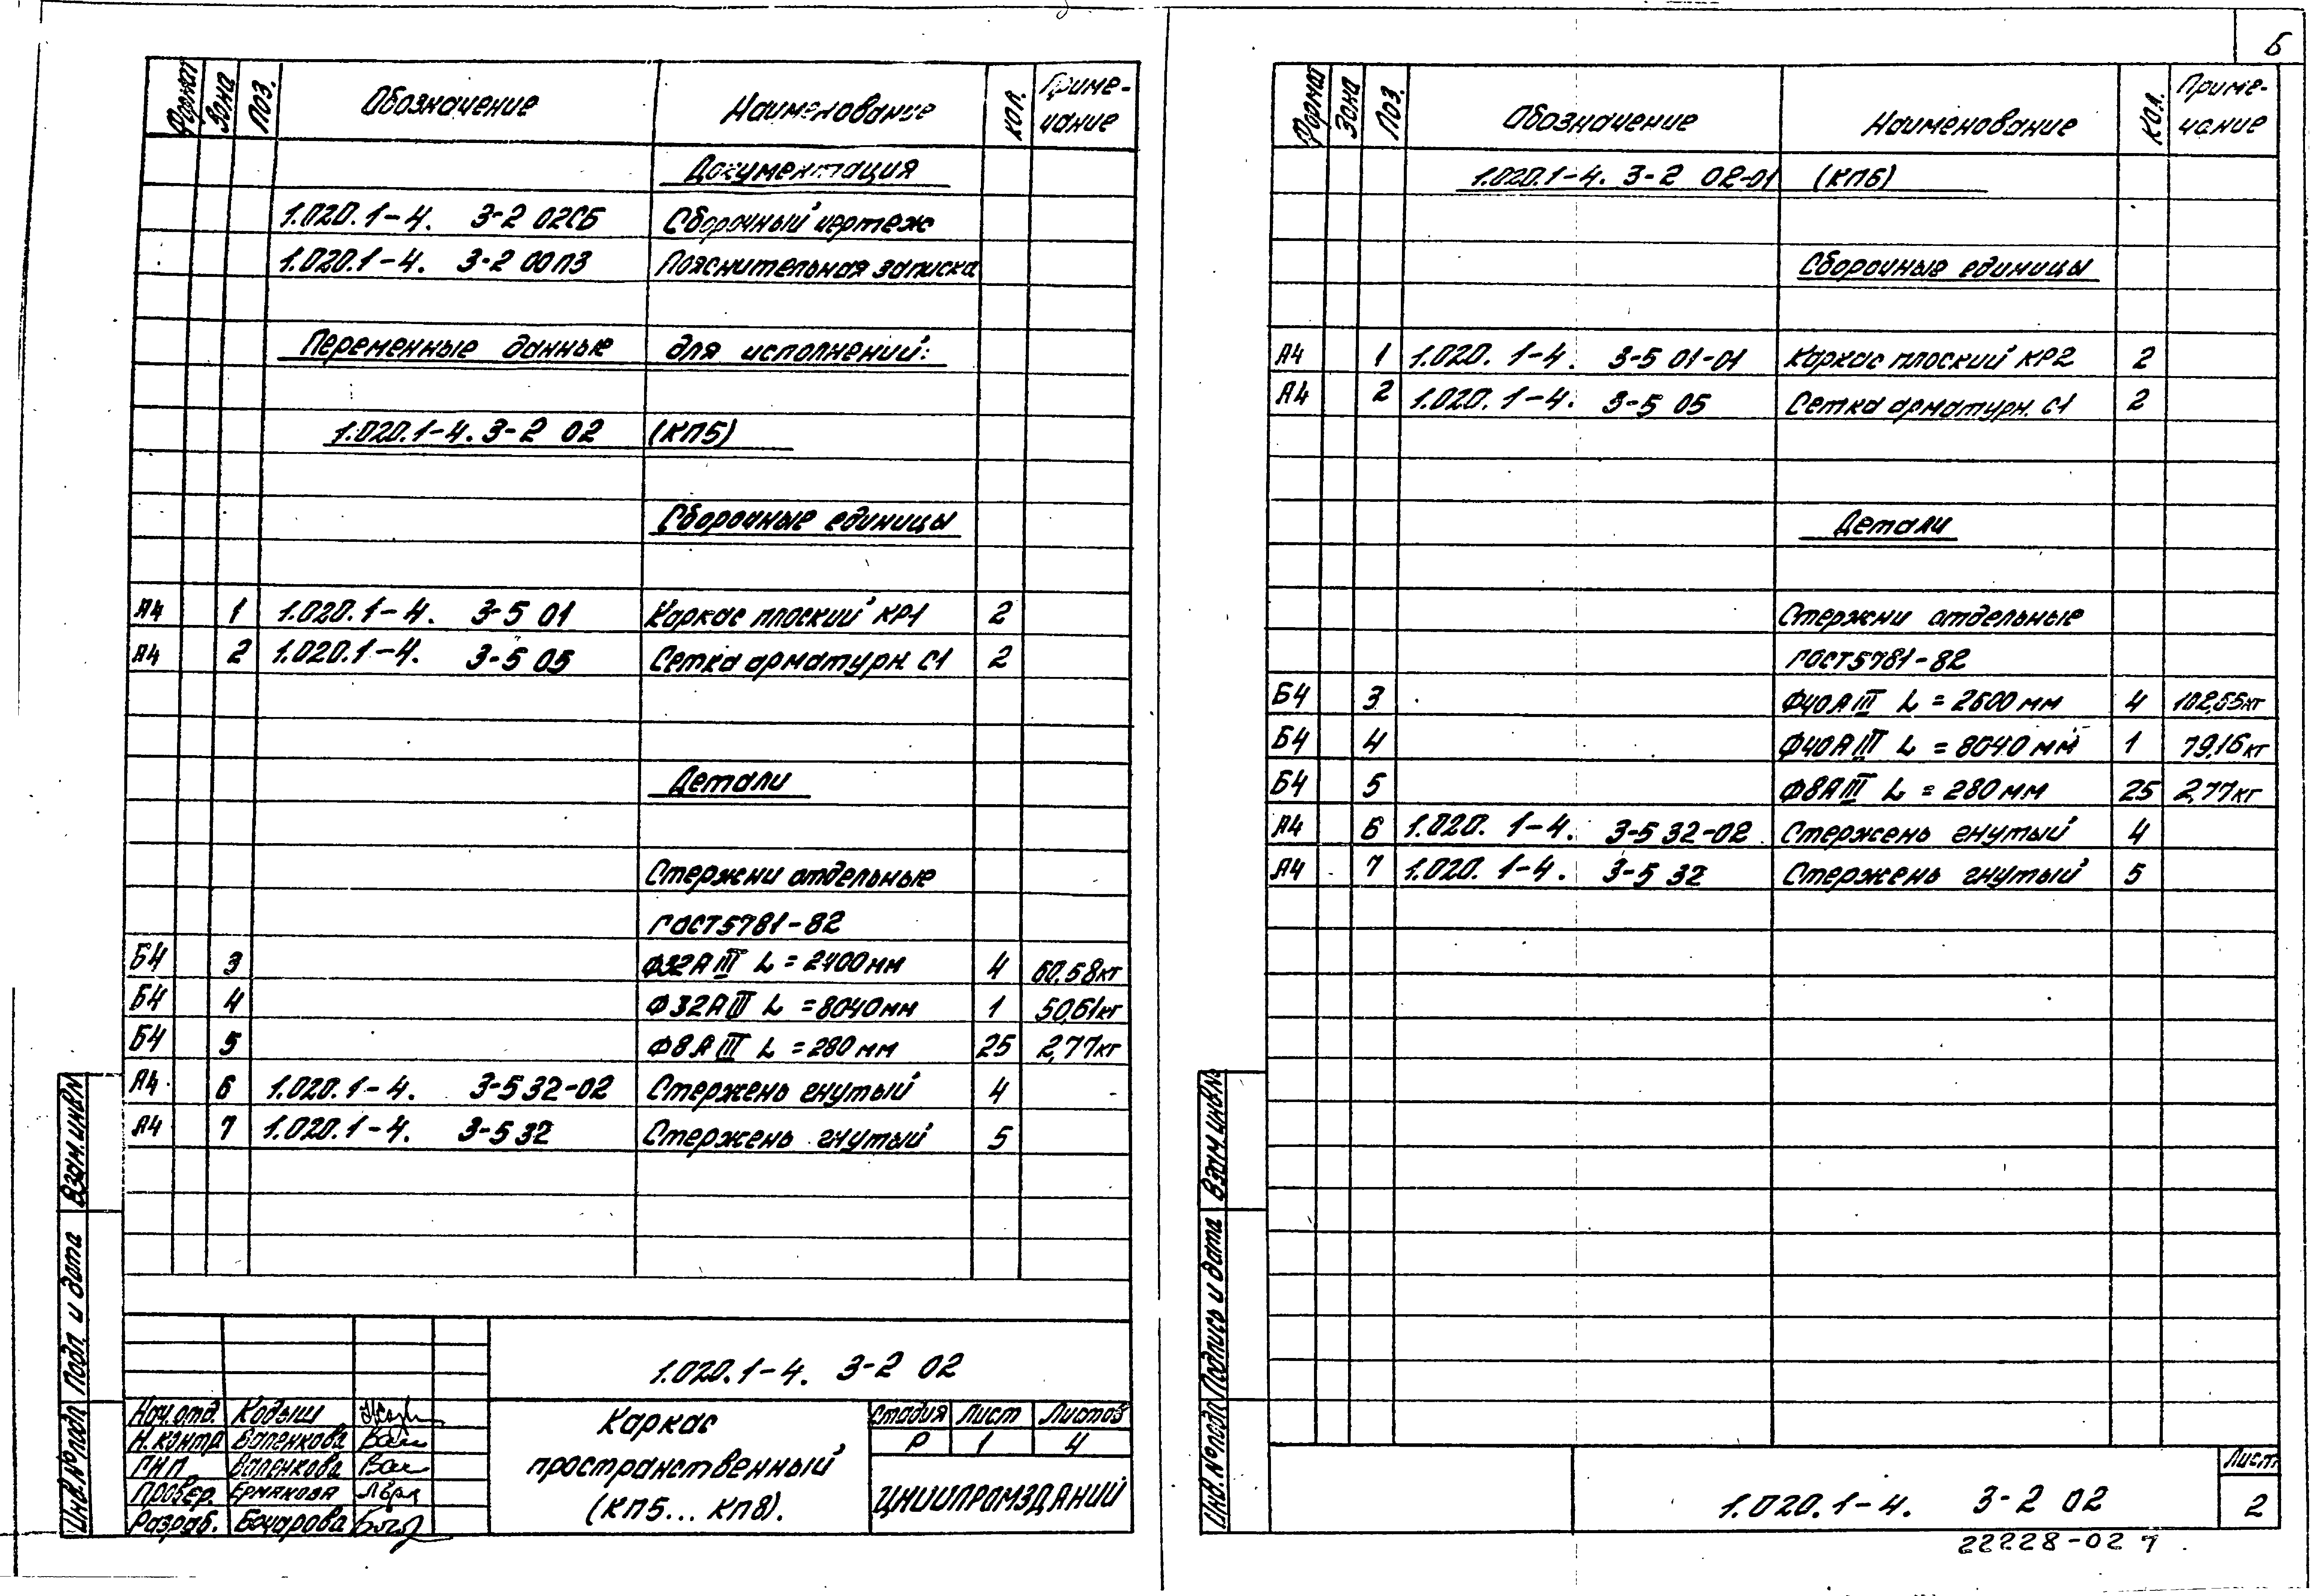 Формат Зона Поз. Обозначение Наименование Кол. Примечание
Документация
1.020.1-4. 3-2 02СБ Сборочный чертеж
1.020.1-4. 3-2 00ПЗ Пояснительная записка
Переменные данные для исполнений:
1.020.1-4. 3-2 02 (КП5)
Сборочные единицы
А4 1 1.020.1-4. 3-5 01 Каркас плоский КР1 2
А4 2 1.020.1-4. 3-5 05 Сетка арматурн. С1 2
Детали
Стержни отдельные
ГОСТ 5781-82
Б4 3 Ф32АIII L=2400мм 4 60,58кг
Б4 4 Ф32АIII L=8040мм 1 50,61кг
Б4 5 Ф8АIII L=280мм 25 2,77кг
А4 6 1.020.1-4. 3-5 32-02 Стержень гнутый 4
А4 7 1.020.1-4. 3-5 32 Стержень гнутый 5
Инв.№подл. Подп. и дата Взам.инв№
1.020.1-4. 3-2 02
Нач.отд. Кодыш
Н.контр Валенкова
ГИП Валенкова
Провер. Ермакова
Разраб. Бочарова
Каркас
пространственный
(КП5...КП8).
Стадия Лист Листов
Р 1 4
ЦНИИПРОМЗДАНИЙ
6
Формат Зона Поз. Обозначение Наименование Кол. Примечание
1.020.1-4. 3-2 02-01 (КП6)
Сборочные единицы
А4 1 1.020.1-4. 3-5 01-01 Каркас плоский КР2 2
А4 2 1.020.1-4. 3-5 05 Сетка арматурн. С1 2
Детали
Стержни отдельные
ГОСТ 5781-82
Б4 3 Ф40АIII L=2600мм 4 102,65кг
Б4 4 Ф40АIII L=8040мм 1 79,16кг
Б4 5 Ф8АIII L=280мм 25 2,77кг
А4 6 1.020.1-4. 3-5 32-02 Стержень гнутый 4
А4 7 1.020.1-4. 3-5 32 Стержень гнутый 5
Инв.№подл Подпись и дата Взам.инв№
1.020.1-4. 3-2 02
Лист
2
22228-02 7